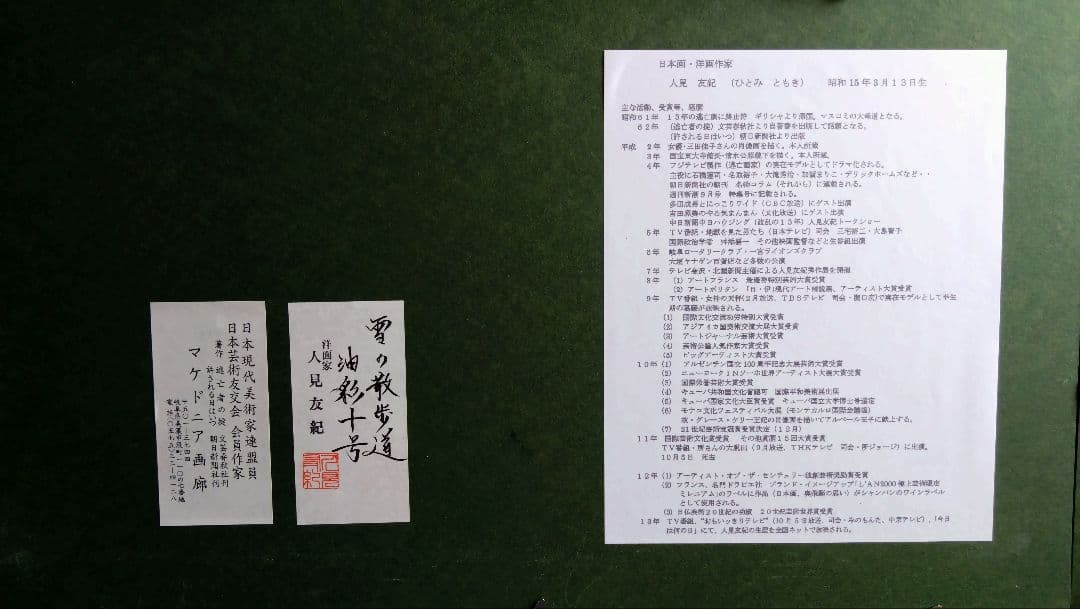 日本現代美術家連盟員
日本芸術友交会 会員作家
著作 逃亡者の掟 文芸春秋社刊
許される日はいつ 朝日新聞社刊
マケドニア画廊
雪の散歩道
油彩十号
洋画家
人見友紀
日本画・洋画作家
人見 友紀 (ひとみ ともき) 昭和15年3月13日生
主な活動、受賞等、経歴
昭和61年 13年の逃亡旅に終止符 ギリシャより帰国。マスコミの大報道となる。
62年 (逃亡者の掟)文芸春秋社より自著書を出版して話題となる。
(許される日はいつ)朝日新聞社より出版
平成 2年 女優・三田佳子さんの肖像画を描く。本人所蔵
3年 国宝東大寺館長・清水公照猊下を描く。本人所蔵。
4年 フジテレビ製作(逃亡画家)の実在モデルとしてドラマ化される。
主役に石橋蓮司・名取裕子・大滝秀治・加賀まりこ・デリックホームズなど・・
朝日新聞社の朝刊 名物コラム(それから)に連載される。
週刊新潮9月号 特集号に記載される。
多田成男とにっこりワイド(CBC放送)にゲスト出演
吉田照美のやる気まんまん(文化放送)にゲスト出演
中日新聞中日ハウジング(波乱の13年)人見友紀トークショー
5年 TV番組・地獄を見た男たち(日本テレビ)司会 三宅裕二・大島智子
国際政治学者 舛添要一 その他映画監督などと生番組出演
6年 岐阜ロータリークラブ・一宮ライオンズクラブ
大垣ヤナゲン百貨店など多数の公演
7年 テレビ金沢・北國新聞主催による人見友紀秀作展を開催
8年 (1) アートフランス 最優秀特別芸術大賞受賞
(2) アートポリタン 「日・伊」現代アート検証展、アーティスト大賞受賞
9年 TV番組・女神の天秤(2月放送、TBSテレビ 司会・関口宏)で実在モデルとして半生
期の葛藤が放映される。
(1) 国際文化交流功労特別大賞受賞
(2) アジアイカ国美術交流大展大賞受賞
(3) アートジャーナル芸術大賞受賞
(4) 芸術公論人気作家大賞受賞
(5) ビッグアーティスト大賞受賞
10年 (1) アルゼンチン建国100周年記念大展芸術大賞受賞
(2) ニューヨークINソーホ世界アーティスト大展大賞受賞
(3) 国際栄誉芸術大賞受賞
(4) キューバ共和国文化省認可 国際平和美術展出展
(5) キューバ国家文化大臣賞受賞 キューバ国立大学博士号選定
(6) モナコ文化フェスティバル大展(モンテカルロ国際会議場)
故・グレース・ケリー王妃の肖像画を描いてアルベール王子に献上する。
(7) 21世紀芸術宝冠賞受賞決定(12月)
11年 国際芸術文化賞受賞 その他実績15回大賞受賞
TV番組・所さんの大脱出(9月放送、THKテレビ 司会・所ジョージ)に出演。
10月5日 死去
12年 (1) アーティスト・オブ・ザ・センチュリー独創芸術活動賞受賞
(2) フランス、名門ドラピエ社 ブランド・イメージアップ「L'AN2000極上芸術選定
ミレニアム」のラベルに作品(日本画、奥飛騨の思い)がシャンパンのワインラベル
として使用される。
(3) 日仏表彰20世紀の功績 20世紀芸術世界賞受賞
13年 TV番組、"おもいッきりテレビ"(10月5日放送、司会・みのもんた、中京テレビ)、「今日
は何の日」にて、人見友紀の生涯を全国ネットで放映される。